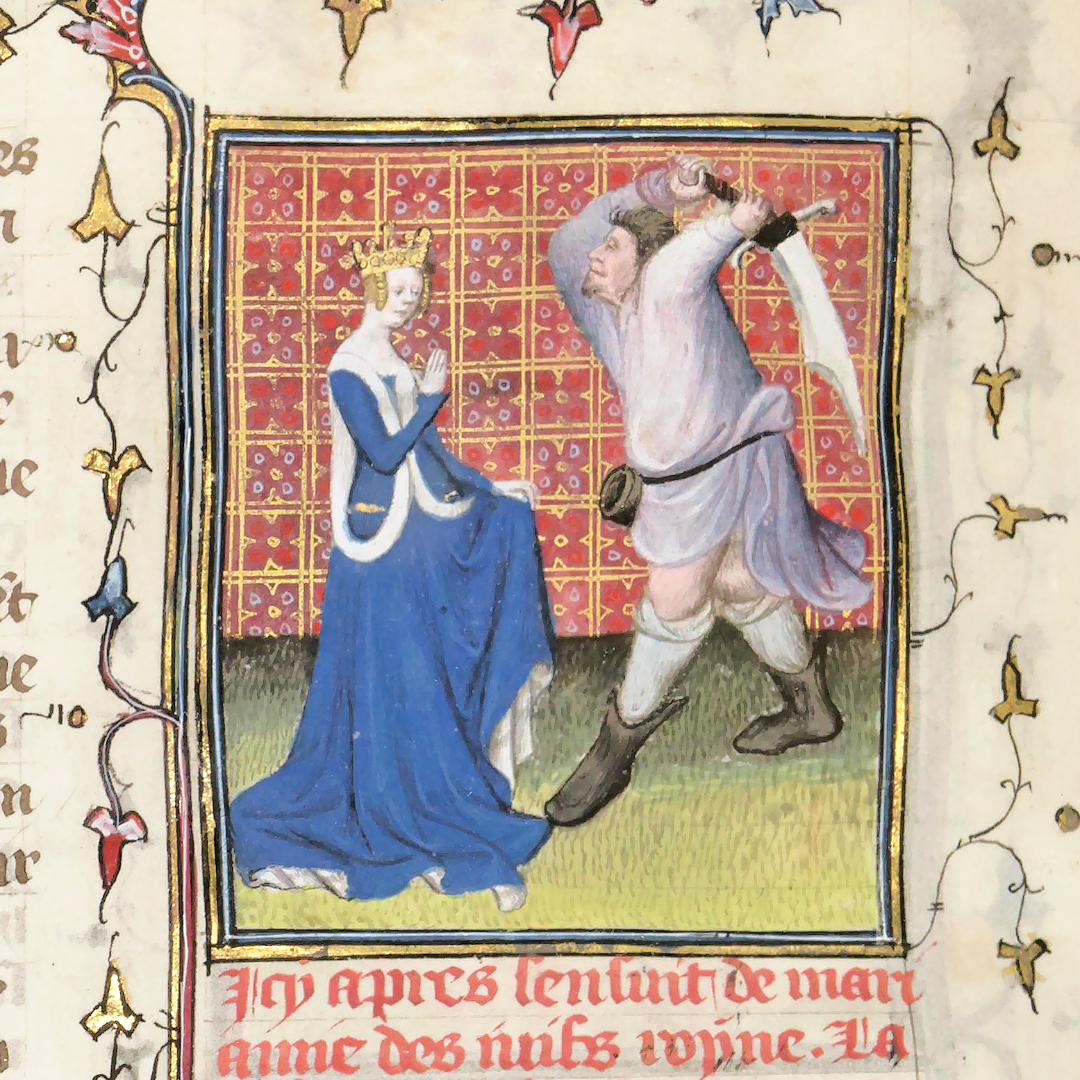 es
n
ue
st
ue
s
n
ar
Icy apres sensuit de mari
amie des iuifs royne. La